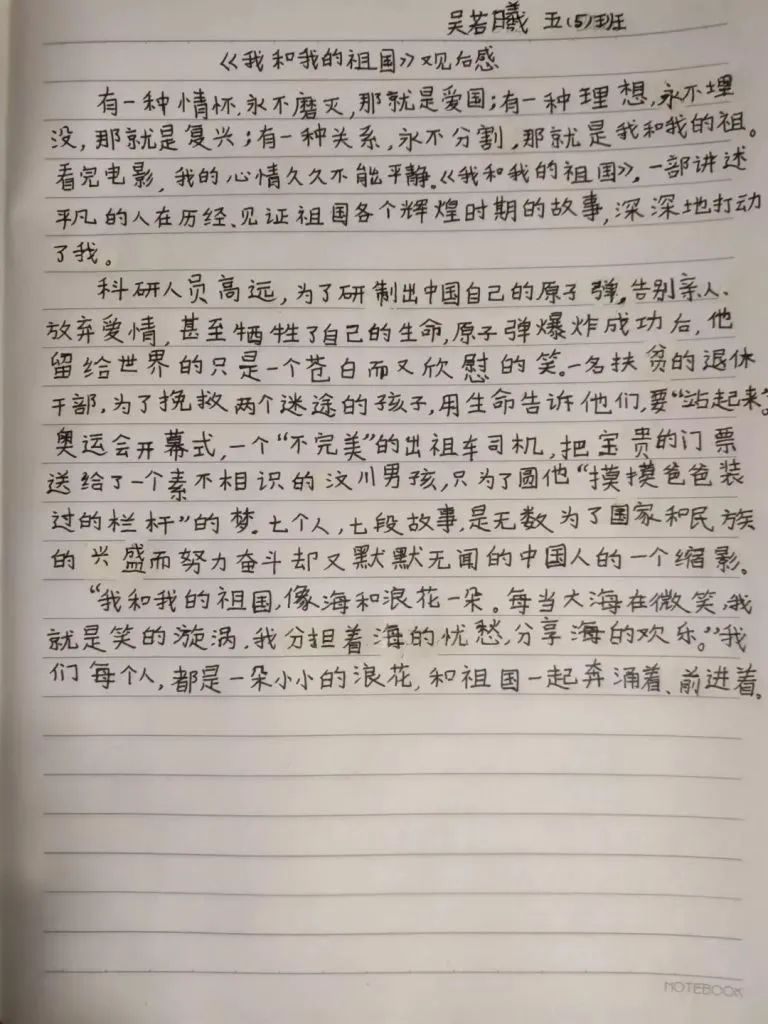 吴若曦 五(5)班
《我和我的祖国》观后感
有一种情怀,永不磨灭,那就是爱国;有一种理想,永不埋
没,那就是复兴;有一种关系,永不分割,那就是我和我的祖。
看完电影,我的心情久久不能平静。《我和我的祖国》,一部讲述
平凡的人在历经、见证祖国各个辉煌时期的故事,深深地打动
了我。
科研人员高远,为了研制出中国自己的原子弹,告别亲人、
放弃爱情,甚至牺牲了自己的生命,原子弹爆炸成功后,他
留给世界的只是一个苍白而又欣慰的笑。一名扶贫的退休
干部,为了挽救两个迷途的孩子,用生命告诉他们,要“站起来”。
奥运会开幕式,一个“不完美”的出租车司机,把宝贵的门票
送给了一个素不相识的汶川男孩,只为了圆他“摸摸爸爸装
过的栏杆”的梦。七个人,七段故事,是无数为了国家和民族
的兴盛而努力奋斗却又默默无闻的中国人的一个缩影。
“我和我的祖国,像海和浪花一朵。每当大海在微笑,我
就是笑的漩涡,我分担着海的忧愁,分享海的欢乐。”我
们每个人,都是一朵小小的浪花,和祖国一起奔涌着、前进着。
NOTEBOOK